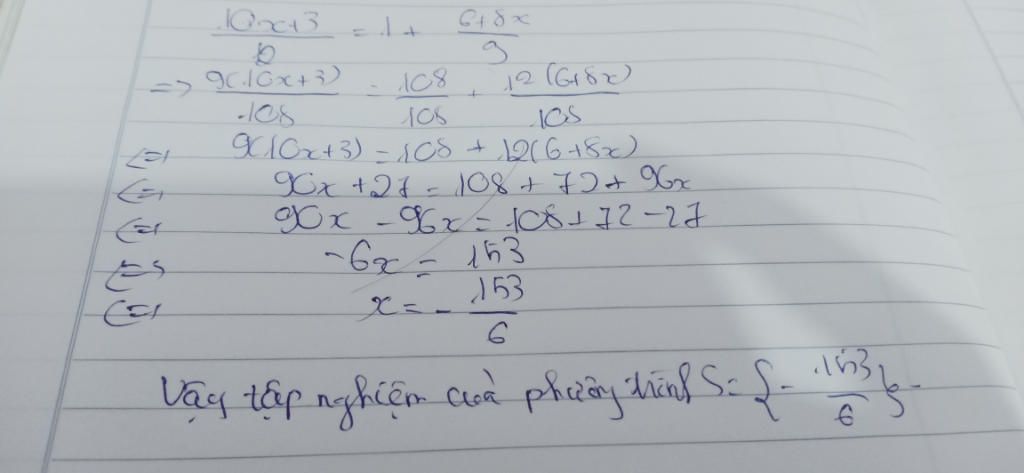 10x+3/12 = 1 + 6+8x/9
=> 9(10x+3)/108 = 108/108 + 12(6+8x)/108
<=> 9(10x+3) = 108 + 12(6+8x)
<=> 90x + 27 = 108 + 72 + 96x
<=> 90x - 96x = 108 + 72 - 27
<=> -6x = 153
<=> x = - 153/6
Vậy tập nghiệm của phương trình S = { - 153/6 }